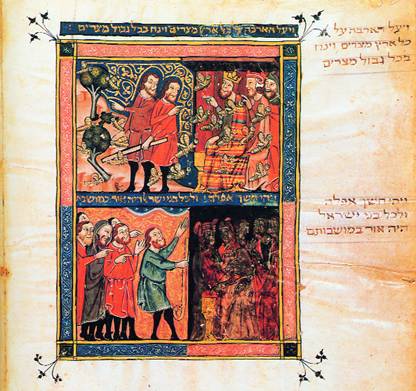 ויעל הארבה על כל ארץ מצרים וינח בכל גבול מצרים
ויעל הארבה על
כל ארץ מצרים וינח
בכל גבול מצרים
ויהי חשך אפלה ולכל בני ישראל היה אור במושבות
ויהי חשך אפלה
ולכל בני ישראל
היה אור במושבותם